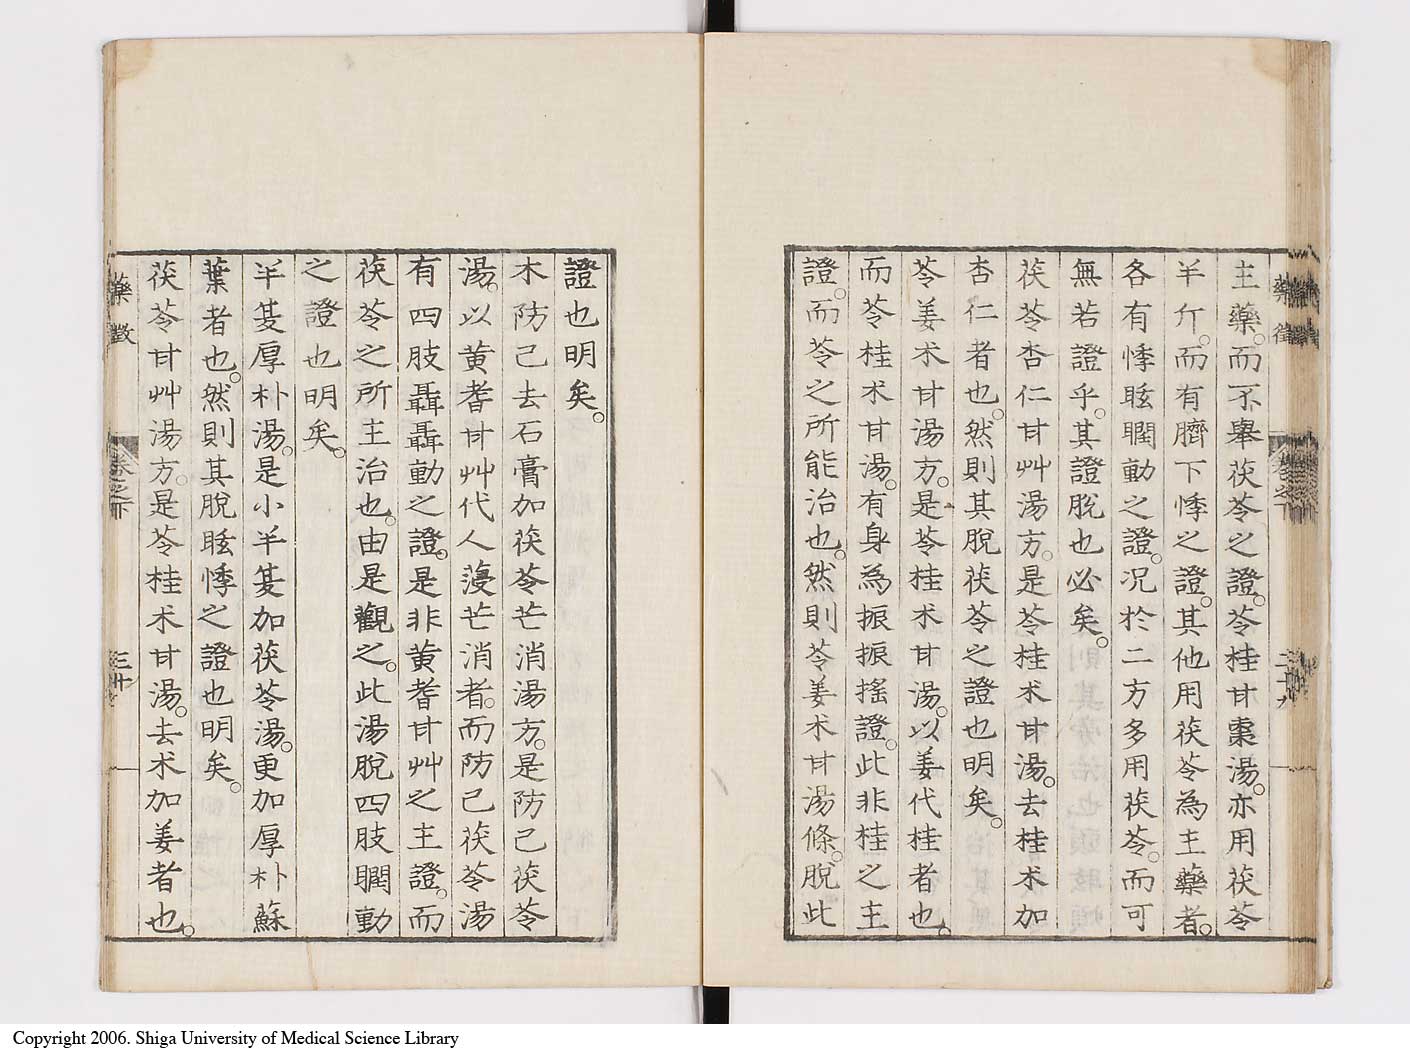 主藥。而不舉茯苓之證。苓桂甘棗湯。亦用茯苓
半斤。而有臍下悸之證。其他用茯苓為主藥者。
各有悸眩瞤動之證。况於二方多用茯苓。而可
無若證乎。其證脫也必矣。
茯苓杏仁甘艸湯方。是苓桂朮甘湯。去桂朮加
杏仁者也。然則其脫茯苓之證也明矣。
苓姜朮甘湯方。是苓桂朮甘湯。以姜代桂者也。
而苓桂朮甘湯。有身為振振搖證。此非桂之主
證。而苓之所能治也。然則苓姜朮甘湯條。脫此
藥徵
卷之下
二十九
證也明矣。
木防己去石膏加茯苓芒消湯方。是防己茯苓
湯。以黃耆甘艸代人薓芒消者。而防己茯苓湯
有四肢聶聶動之證。是非黃耆甘艸之主證。而
茯苓之所主治也。由是觀之。此湯脫四肢瞤動
之證也明矣。
半夏厚朴湯。是小半夏加茯苓湯。更加厚朴蘇
葉者也。然則其脫眩悸之證也明矣。
茯苓甘艸湯方。是苓桂朮甘湯。去朮加姜者也。
藥徵
卷之下
三十
Copyright 2006. Shiga University of Medical Science Library